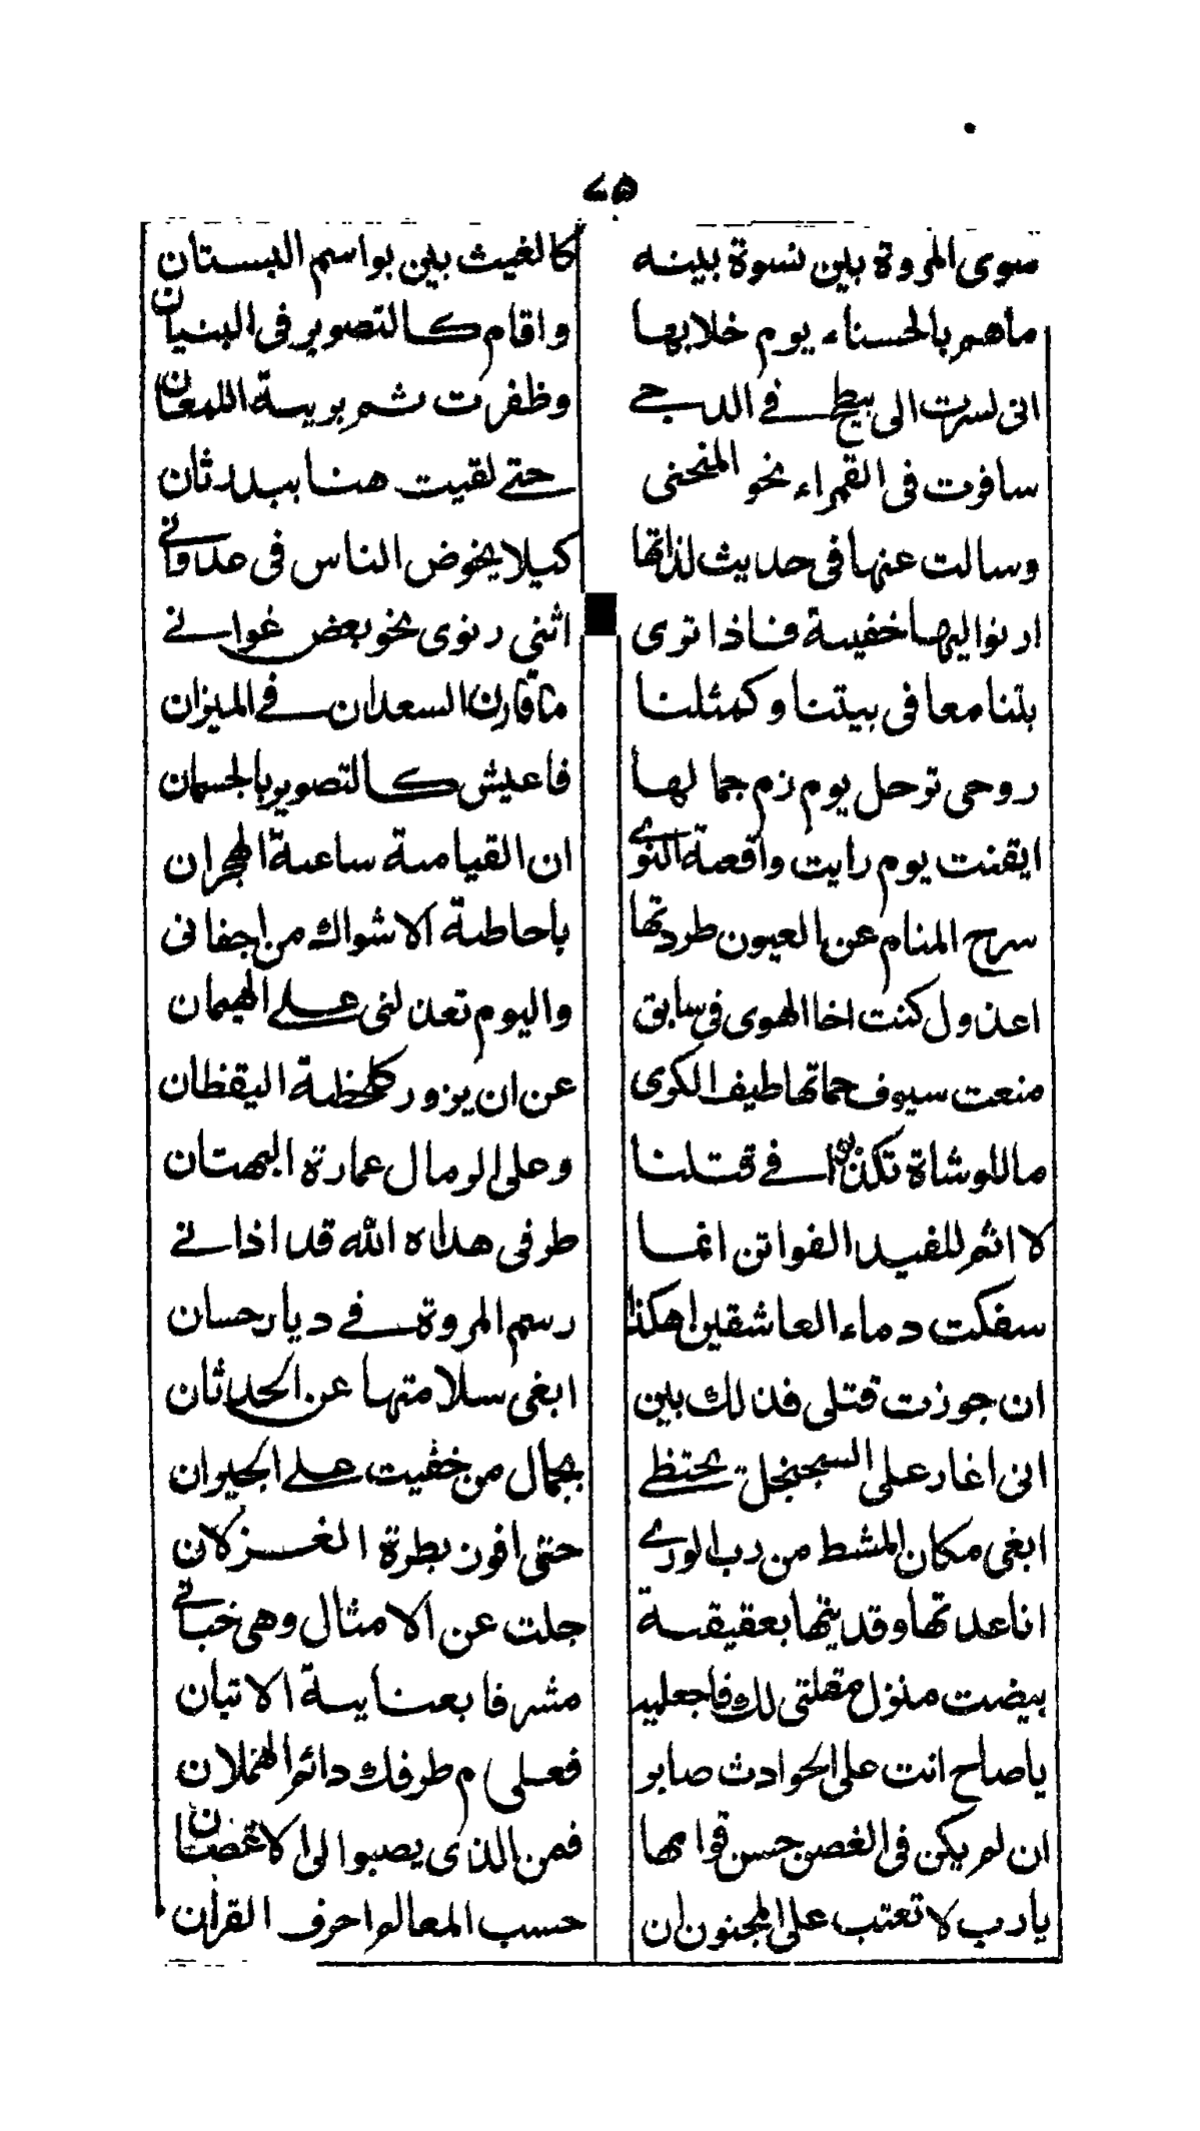 ٤٥
سوى المروة بين نسوة بينه كالغيث بين بواسم البستان
ماهم بالحسناء يوم خلابها واقام كالتصوير في البنيان
انى لسرت الى بيط في الدجى وظفرت ثم بريسة اللمعان
سافرت في القمراء نحو المنحنى حتى لقيت هنا ببدر ثان
وسالت عنها في حديث لذاتها كيلا يخوض الناس في
ارنوا اليها خفية فاذا ترى اثنى رنوى نحو بعض غوانى
بتنا معا في بيتنا وكمثلنا ما قارن السعدان في الميزان
روحى ترحل يوم زم جما لها فاعيش كالتصوير بالجسمان
ايقنت يوم رايت واقعة النوى ان القيامة ساعة الهجران
سرح المنام عن العيون طردتها باحاطة الاشواك من اجفانى
اعذول كنت اخا الهوى في سابق واليوم تعذلنى على الهيمان
منعت سيوف حماتها طيف الكرى عن ان يزور كلحظة اليقظان
ماللوشاة في قتلنا وعلى الرمال عمارة البهتان
لا اثم للغيد الفواتن انما طرفى هداه الله قد اذانى
سفكت دماء العاشقين اهكذا رسم المروة في ديار حسان
ان جوزت قتلى فذلك بين ابغى سلامتها عن الحدثان
انى اغار على السجنجل يحتظى بجمال من خفيت على الجيران
ابغى مكان المشط من رب الورى حتى افوز بطرة الغزلان
انا عدتها وقديتها بعقيقة جلت عن الامثال وهى
بيضت منزل مقلتى لك فاجعليه مشرفا بعناية الاتيان
يا صاح انت على الحوادث صابر فعلى م طرفك دائم الهملان
ان لم يكن في الغصن حسن قوامها فمن الذى يصبوا لى الاغصان
يارب لا تعتب على المجنون ان حسب المعالم احرف القران